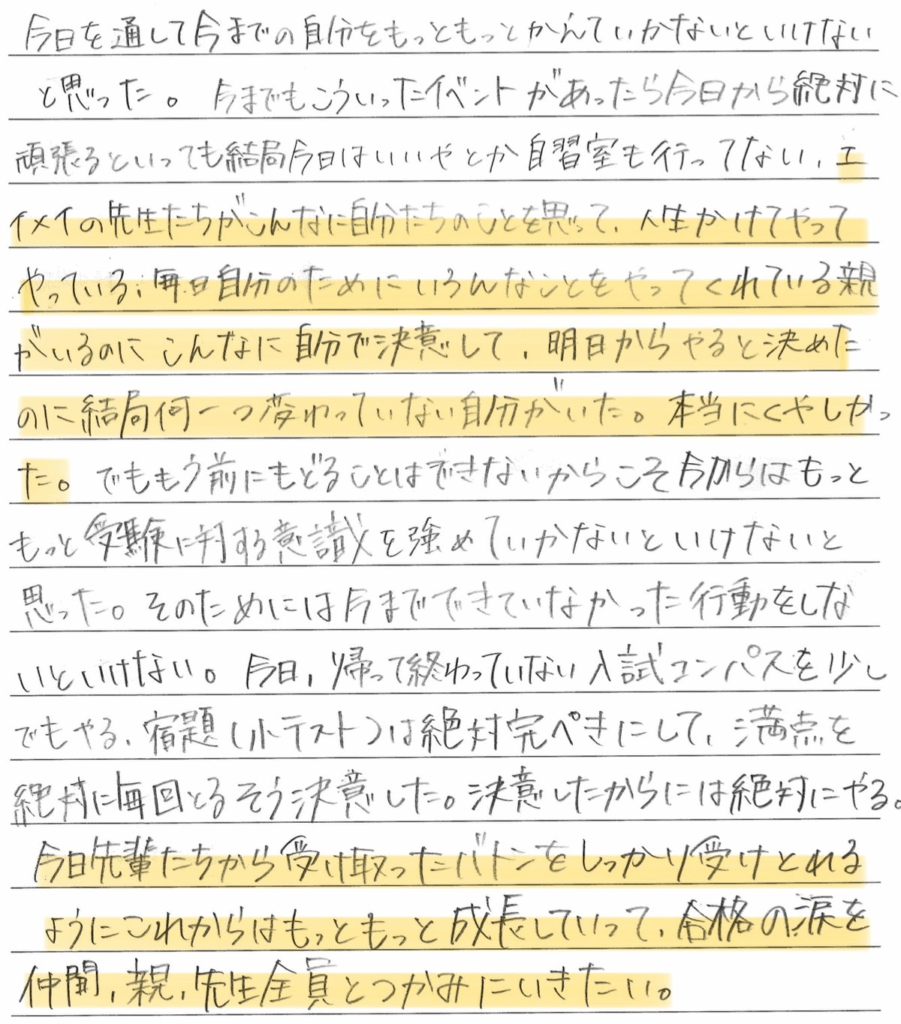 今日を通して今までの自分をもっともっとかえていかないといけない
と思った。今までもこういったイベントがあったら今日から絶対に
頑張るといっても結局今日はいいやとか自習室も行ってない、エ
イメイの先生たちがこんなに自分たちのことを思って、人生かけてやって
やっている、毎日自分のためにいろんなことをやってくれている親
がいるのにこんなに自分で決意して、明日からやると決めた
のに結局何一つ変わっていない自分がいた。本当にくやしかっ
た。でももう前にもどることはできないからこそ今からはもっと
もっと受験に対する意識を強めていかないといけないと
思った。そのためには今までできていなかった行動をしな
いといけない。今日、帰って終わっていない入試コンパスを少し
でもやる、宿題(小テスト)は絶対完ぺきにして、満点を
絶対に毎回とるそう決意した。決意したからには絶対にやる。
今日先輩たちから受け取ったバトンをしっかり受けとれる
ようにこれからはもっともっと成長していって、合格の涙を
仲間、親、先生全員とつかみにいきたい。